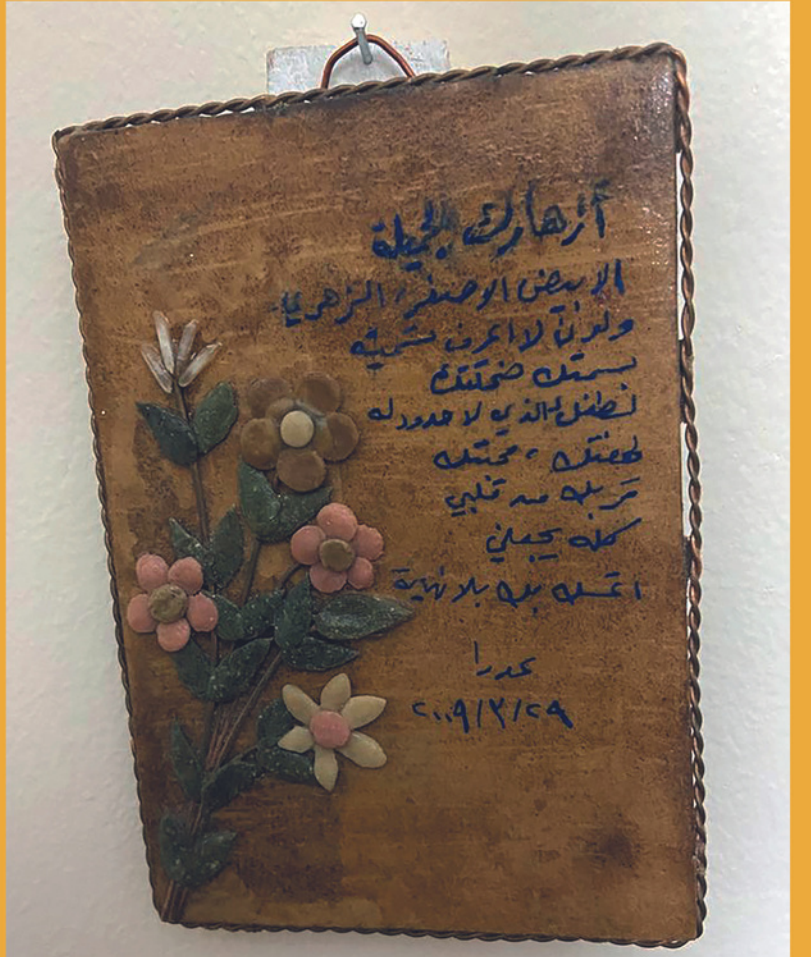 أزهارك الجميلة
الابيض الاصفر، الزهري
ولون لا اعرف تسميته
بسمتك ضحكتك
لطفك الذي لا حدود له
لهفتك، محبتك
قربك من قلبي
كله يجعلني
اتمسك بك بلا نهاية
٢٠٠٩/٣/٢٩